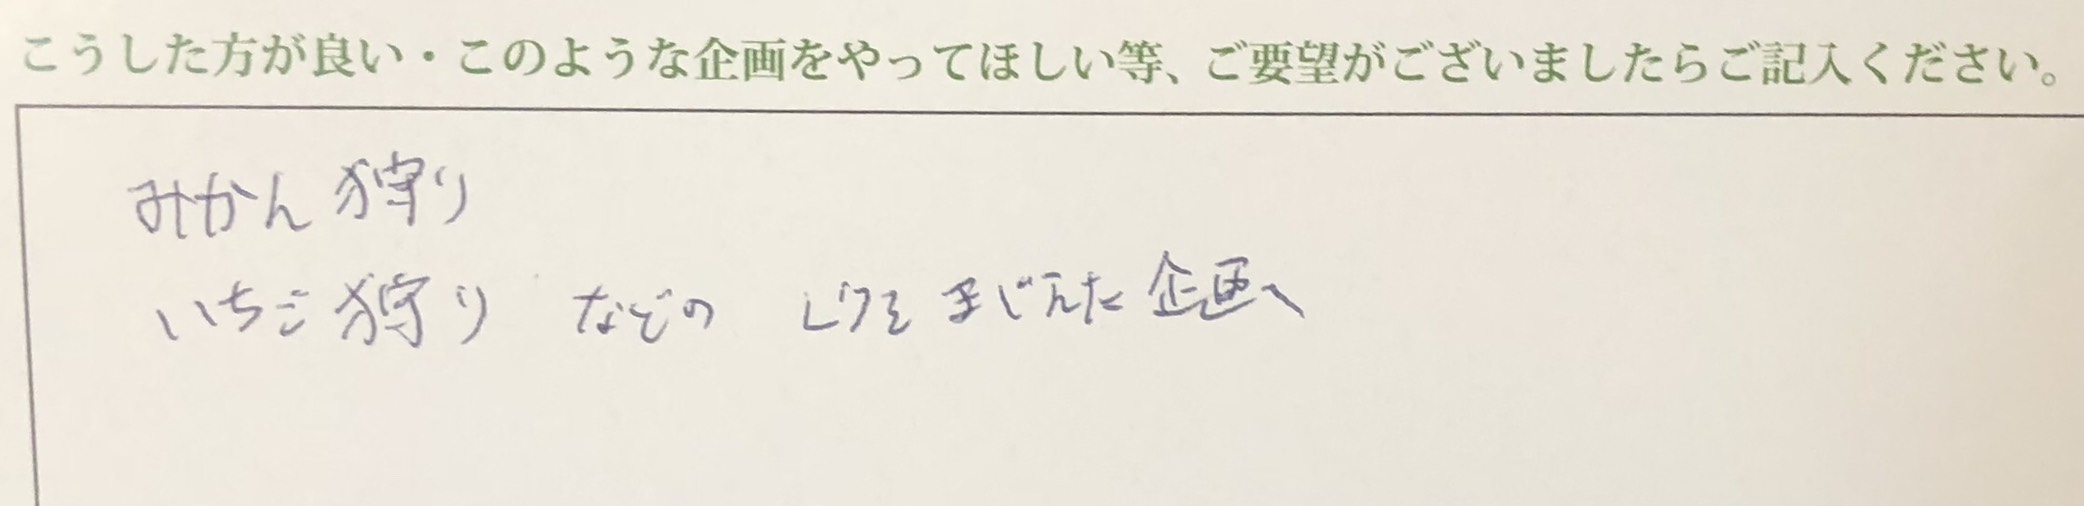 こうした方が良い・このような企画をやってほしい等、ご要望がございましたらご記入ください。
みかん狩り
いちご狩り などの まじえた企画